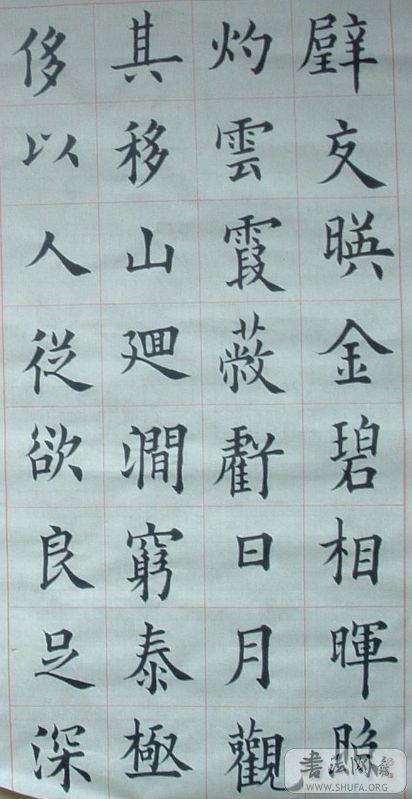 壁交暎金碧相暉照
灼雲霞蔽虧日月觀
其移山廻澗窮泰極
侈以人從欲良足深
书法网
WWW.SHUFA.ORG